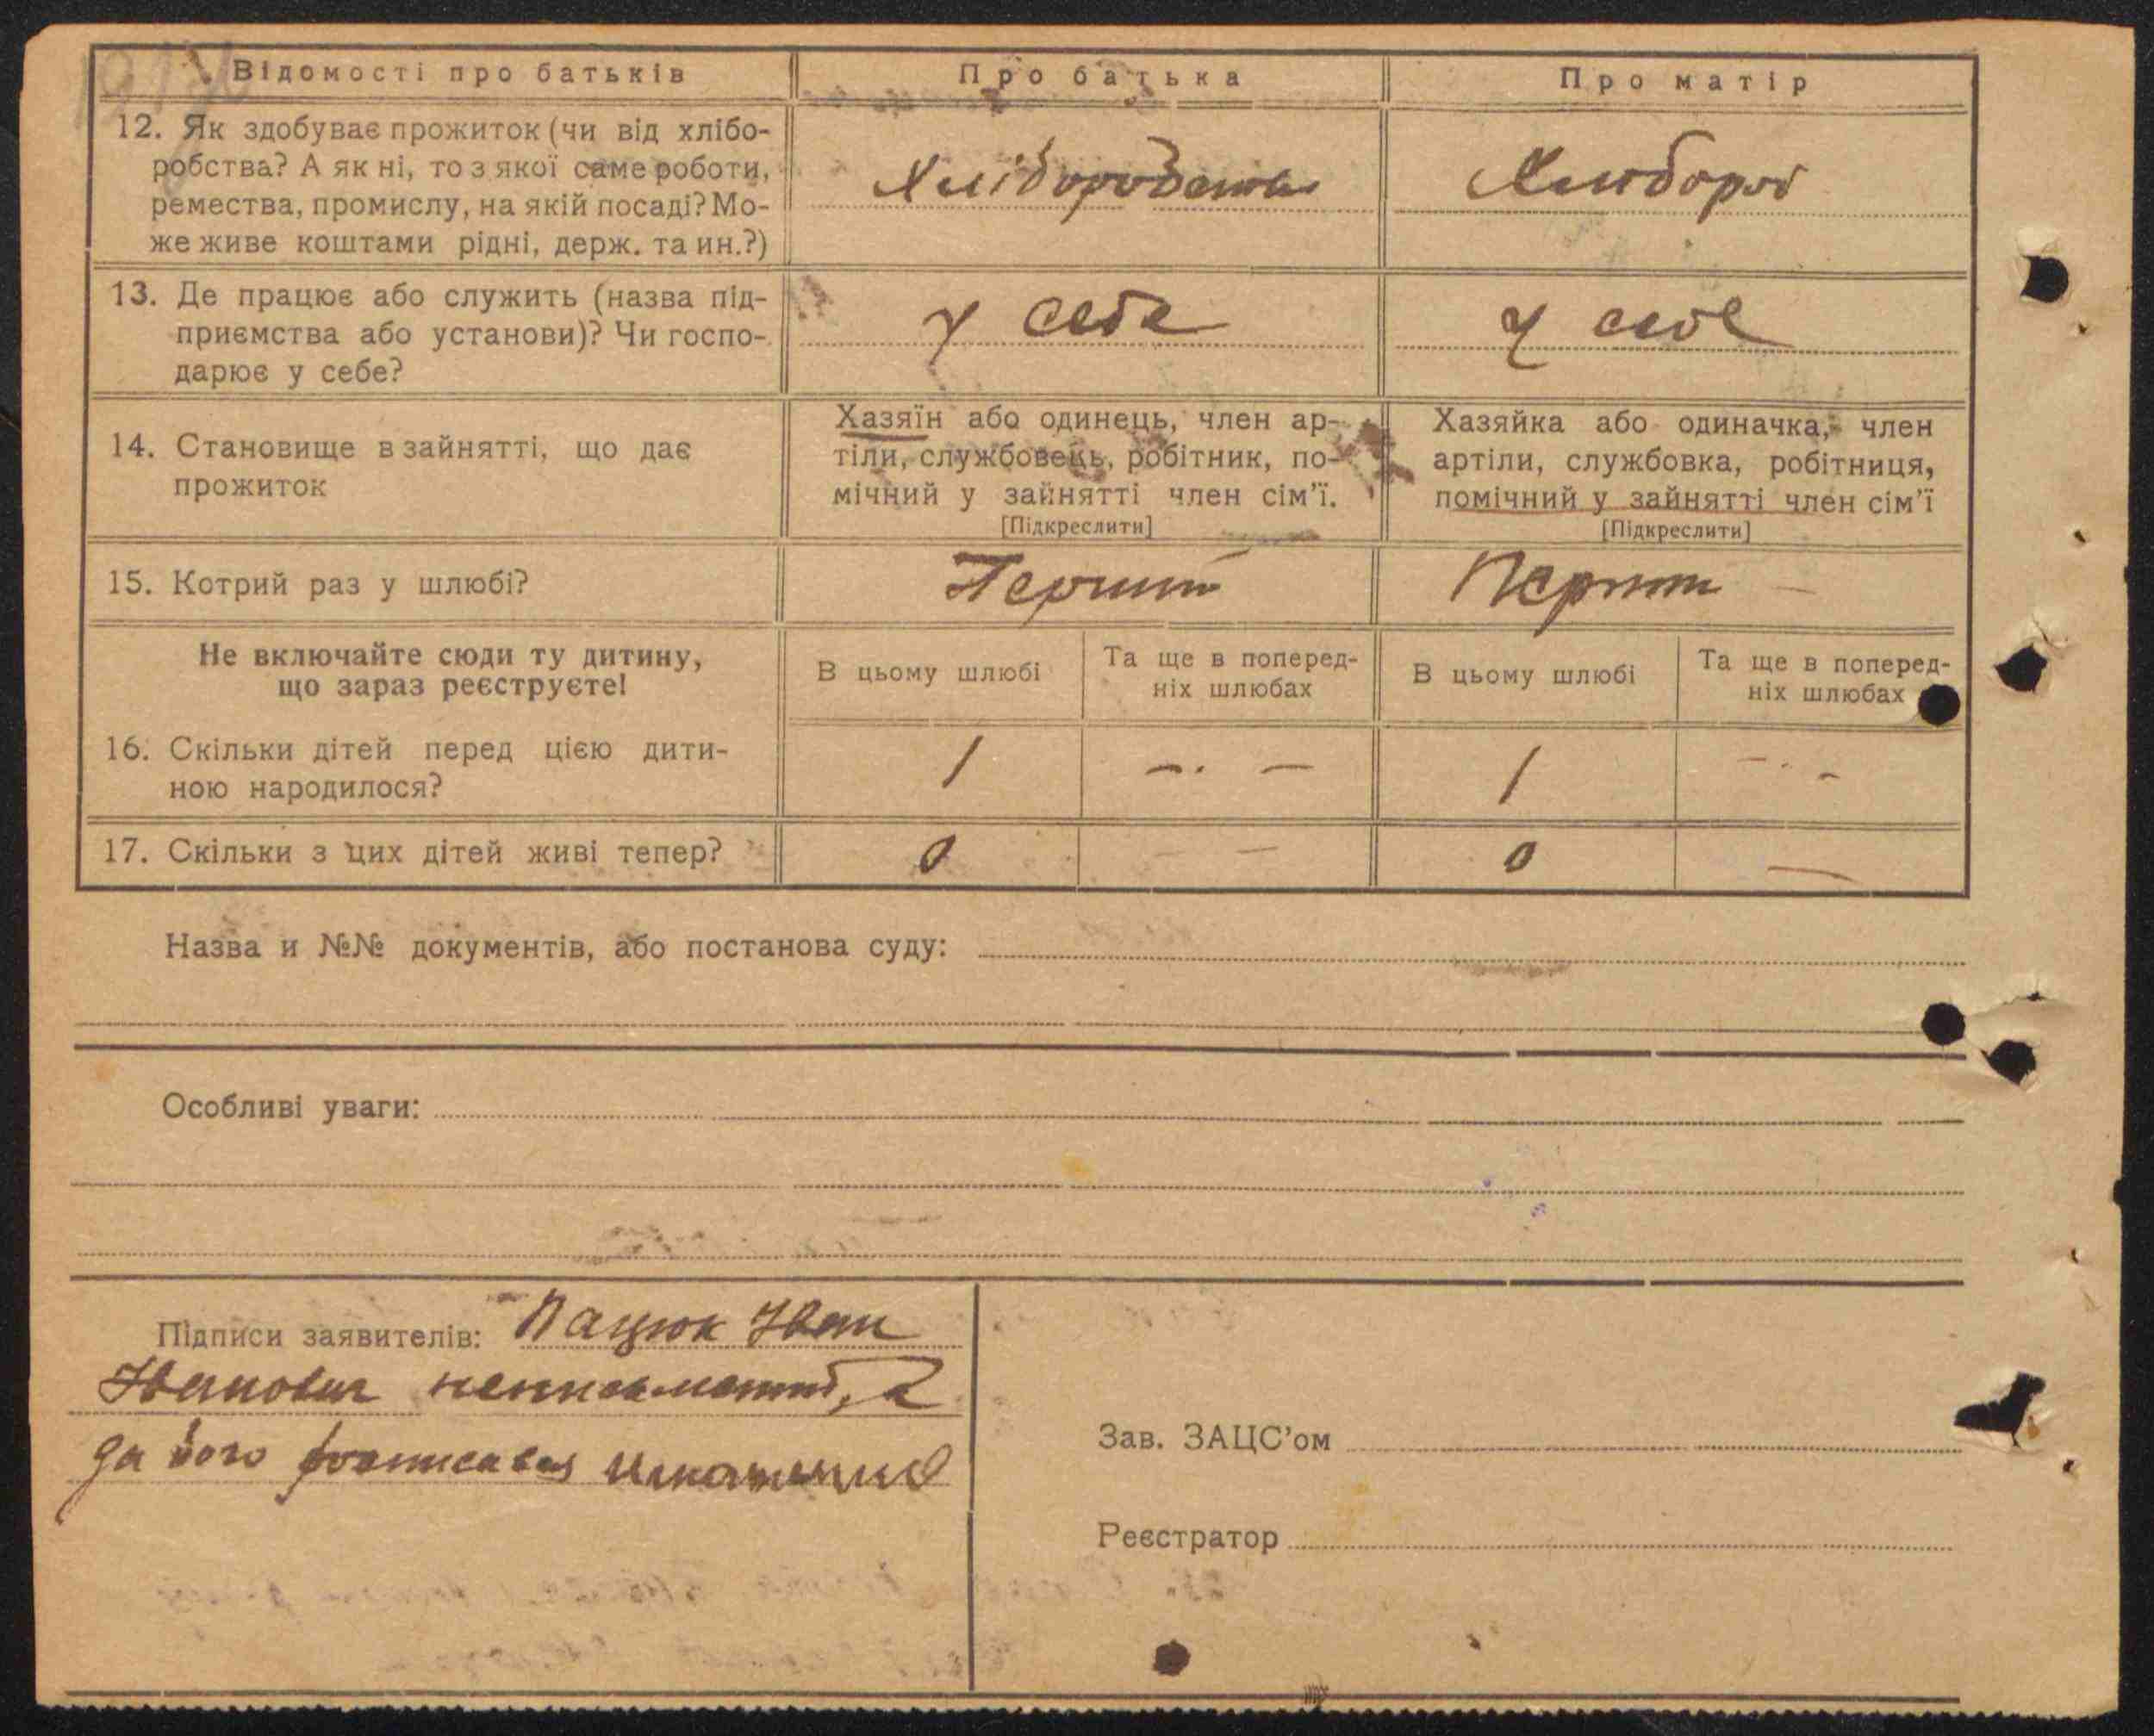 Відомості про батьків
Про батька
Про матір
12. Як здобуває прожиток (чи від хлібо-
робства? А як ні, то з якої саме роботи,
ремества, промислу, на якій посаді? Мо-
же живе коштами рідні, держ. та ин.?)
Хліборобство
Хлибороб
13. Де працює або служить (назва під-
приємства або установи)? Чи госпо-
дарює у себе?
у себе
у себе
14. Становище в зайнятті, що дає
прожиток
Хазяїн або одинець, член ар-
тіли, службовець, робітник, по-
мічний у зайнятті член сім'ї.
[Підкреслити]
Хазяйка або одиначка, член
артіли, службовка, робітниця,
помічний у зайнятті член сім'ї
[Підкреслити]
15. Котрий раз у шлюбі?
Перший
Перший
Не включайте сюди ту дитину,
що зараз реєструєте!
В цьому шлюбі
Та ще в поперед-
ніх шлюбах
В цьому шлюбі
Та ще в поперед-
ніх шлюбах
16. Скільки дітей перед цією дити-
ною народилося?
1
— —
1
— —
17. Скільки з цих дітей живі тепер?
0
— —
0
—
Назва и №№ документів, або постанова суду:
Особливі уваги:
Підписи заявителів: Пацюк Иван
Иванович неписьменний, а
за його росписався
Зав. ЗАЦС'ом
Реєстратор